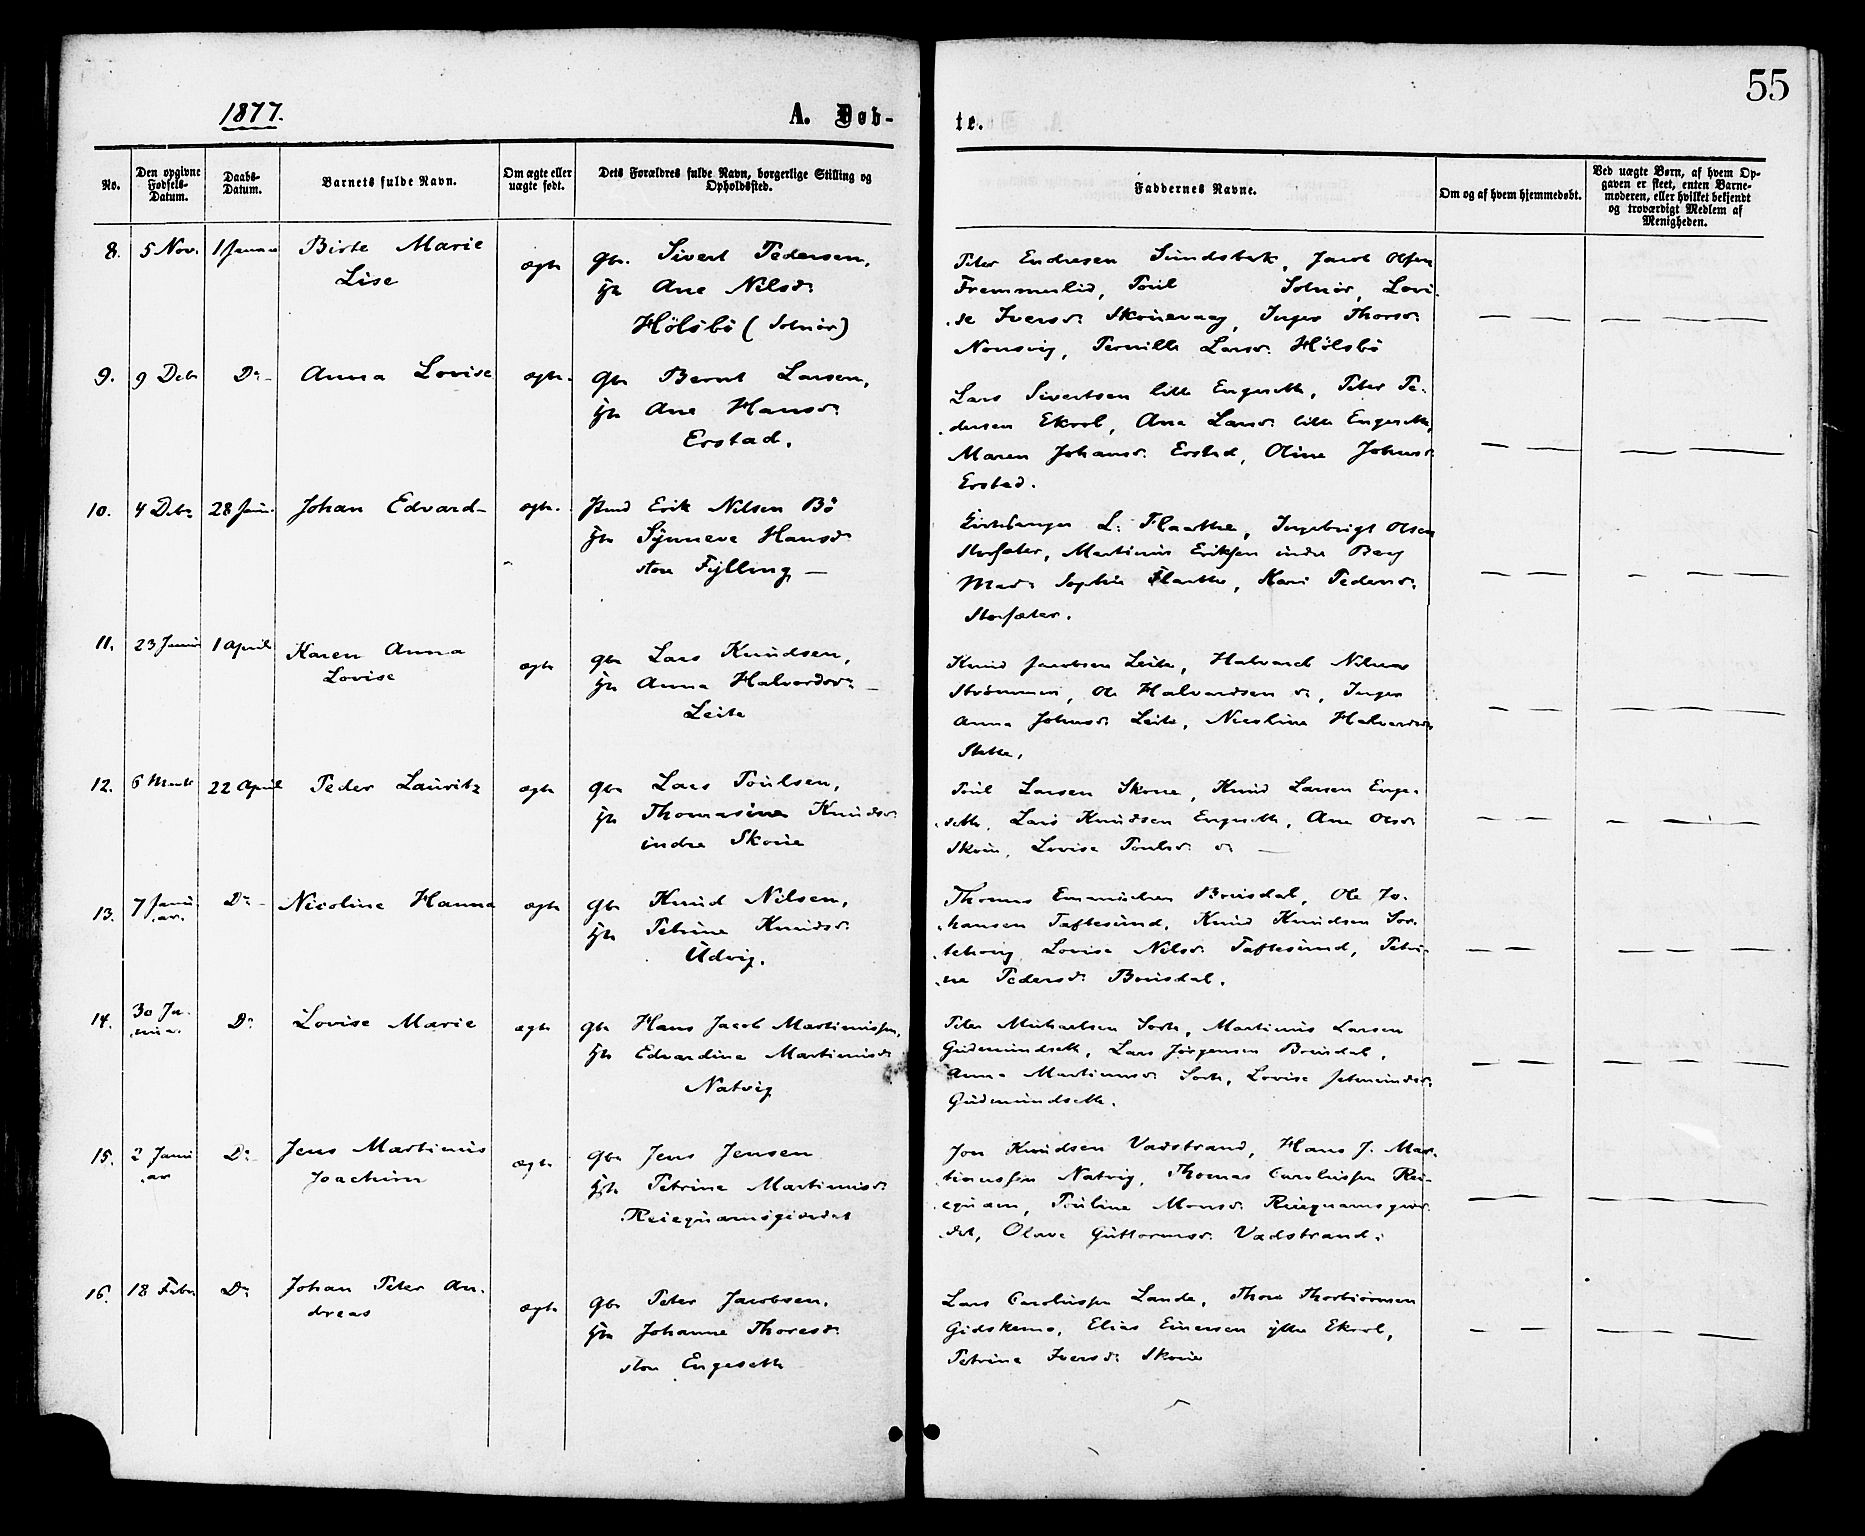 55
1877.
A. Døb-
te.
No.
Den opgivne Fødsels-Datum.
Daabs-Datum.
Barnets fulde Navn.
Om ægte eller uægte født.
Dets Forældres fulde Navn, borgerlige Stilling og Opholdssted.
Faddernes Navne.
Om og af hvem hjemmedøbt.
Ved uægte Børn, af hvem Opgaven er skeet, enten Barnemoderen, eller hvilket bekjendt og troværdigt Medlem af Menigheden.
8. 5 Nov. 1 Januar Birte Marie
Lise
ægte
Gbr. Sivert Pedersen,
Ane Nilsd:
Hölsbö (Solnör)
Peter Endresen Sundsbak, Jacob Olsen
Fremmerlid, Poul Solnör, Lovi-
-se Iversd: Skouevaag, Inger Thorsd:
Nonsvig, Pernille Larsd: Hölsbö
9. 9 Debr Do Anna Lovise
ægte
Gbr Bernt Larsen,
Ane Hansd:
Erstad.
Lars Sivertsen lille Engesette, Peter Pe-
-dersen Ekrol, Ane Larsd: lille Engesette,
Maren Johansd: Erstad, Oline Johnsd:
Erstad.
10. 4 Debr 28 Jan. Johan Edvard
ægte.
Erik Nilsen Bö
Synneve Hansd:
store Fylling
Kirkesanger L. Flaathe, Ingebrigt Olsen
Storsæter, Martinus Eriksen indre Berg
Mad: Sophie Flaathe, Kari Pedersd:
Storsæter.
11. 23 Januar 1 April Karen Anna
Lovise
ægte
Gbr Lars Knudsen,
Anna Halvordsd:
Leite
Knud Jacobsen Leite, Halvard Nilsen
Strömmen, Ole Halvardsen do, Inger
Anna Johnsd: Leite, Nicoline Halvardsd:
Slette,
12. 6 Marts 22 April Peder Lauritz
ægte
Gbr Lars Poulsen,
Thomasine Knudsd:
indre Skoue
Poul Larsen Skoue, Knud Larsen Enge-
-sette, Lars Knudsen Engesette, Ane Olsd:
Skoue, Lovise Poulsd: do
13. 7 Janu
-ar.
Do Nicoline Hanna
ægte
Gbr Knud Nilsen,
Petrine Knudsd:
Udvig.
Thomas Brusdal, Ole Jo-
-hansen Taftesund, Knud Knudsen Sor-
-tehoug Lovise Nilsd: Taftesund, Petri-
-ne Pedersd: Brusdal.
14. 30 Ja-
-nuar.
Do Lovise Marie
ægte
Gbr Hans Jacob Martinussen,
Edvardine Martinusd:
Natvig
Peter Michaelsen Sorte, Martinus Larsen
Gudmundsette, Lars Jørgensen Brusdal,
Anna Martinusd: Sorte, Lovise
Gudmundsette.
15. 2 Janu
-ar
Do Jens Martinus
Joachim
ægte
Gbr Jens Jensen
Petrine Martinusd:
Reiequamsgjerdet
Jon Knudsen Vadstrand, Hans J. Mar-
-tinussen Natvig, Thomas Carolussen Rei-
-equam, Pauline Monsd: Reiequamsgjer-
-det, Olave Guttormsd: Vadstrand.
16. 18 Febr. Do Johan Peter An-
dreas
ægte
Gbr Peter Jacobsen,
Johanne Thoresd:
store Engesette
Lars Carolussen Lande, Thore Thorbiörnsen
Gidskemo, Elias Einersen ytre Ekrol,
Petrine Iversd: Skoue